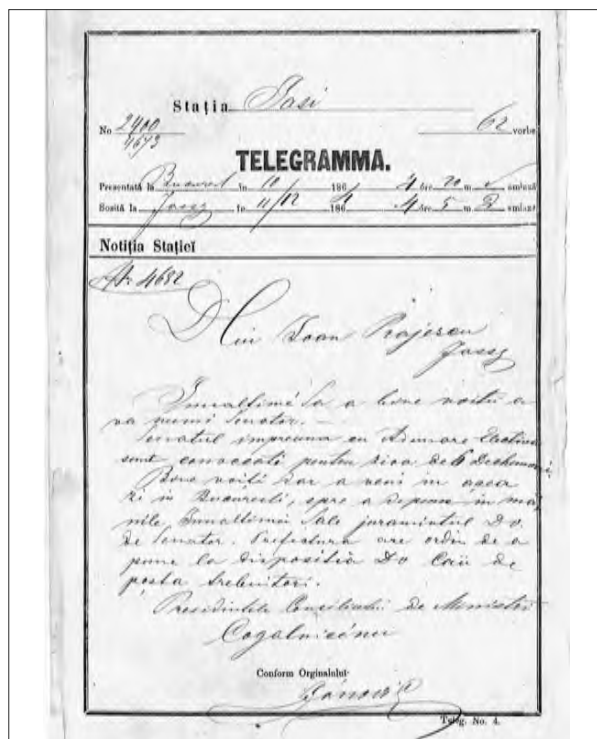 Stația Iasi
No 2400 / 4673 62 vorbe
TELEGRAMMA.
Presentată la Bucuresci în 10/ 186 4 óre 20 m.
Sosită la Jassy în 11/12 1864 4 óre 5 m.
Notiția Stațieĭ
No 4682
D lui Ioan Prajescu
Jassy
Innaltimé Sa a bine voitu a
va numi Senator. —
Senatul impreuna cu Adunare Electiva
sunt convocati pentru zioa de 6 Dechemvri.
Bine voiti dar a veni in
in Bucuresti, spre a depune in mâ
nile, Innaltimii Sale juramintul Dv.
de Senator. Prefectura are ordin de a
pune la dispositia Dv Caii de
posta trebuitori.
Presidintele Consiliului de Ministri
Cogalnicénu
Conform Orginalului
Teleg. No. 4.